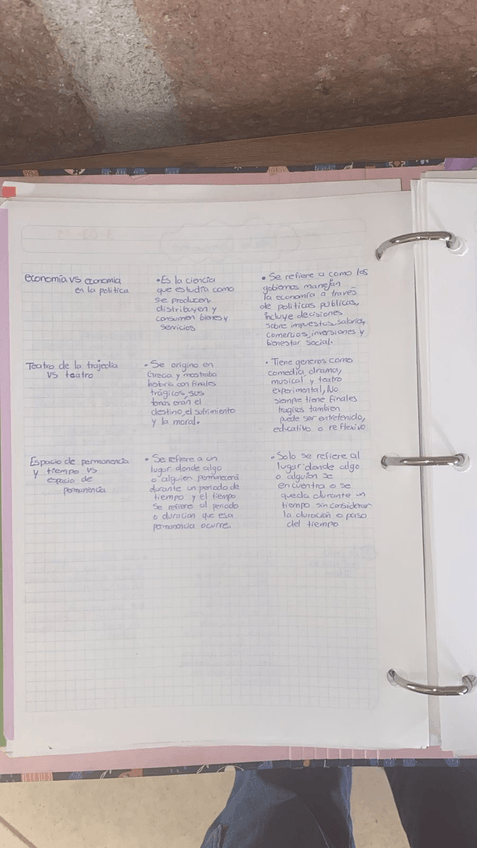 economía vs economia
en la política
• Es la ciencia
que estudia como
se producen,
distribuyen y
consumen bienes y
servicios
• Se refiere a como los
gobiernos manejan
la economía a través
de políticas públicas,
Incluye decisiones
sobre impuestos, salario,
comercios, inversiones y
bienestar social.
Teatro de la trajedia
vs teatro
• Se origino en
Grecia y mostraba
historia con finales
trágicos, sus
temas eran el
destino, el sufrimiento
y la moral.
• Tiene generos como
comedia, drama,
musical y teatro
experimental, No
siempre tiene finales
trágicos tambien
puede ser entretenido,
educativo o reflexivo
Espacio de permanencia
y tiempo vs
espacio de
permanencia
• Se refiere a un
lugar donde algo
o alguien permanecerá
durante un periodo de
tiempo y el tiempo
se refiere al periodo
o duracion que esa
permanencia ocurre.
• Solo se refiere al
lugar donde algo
o alguien se
encuentra o se
queda durante un
tiempo sin considerar
la duración o paso
del tiempo